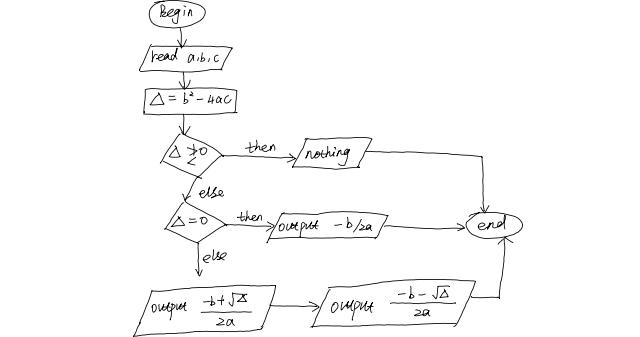 Begin
read a,b,c
Δ = b² - 4ac
Δ < 0
then
nothing
else
Δ = 0
then
output -b/2a
end
else
output (-b + √Δ)/2a
output (-b - √Δ)/2a